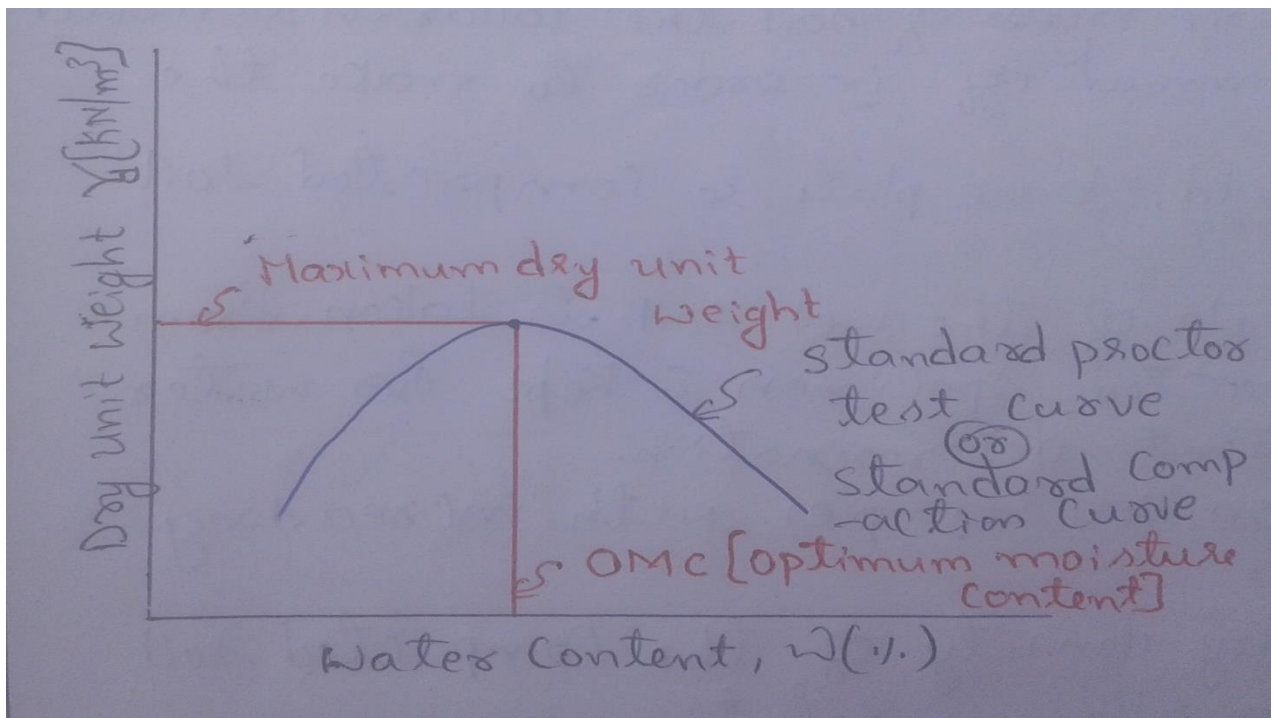 Dry unit weight γd[KN/m³]
Maximum dry unit
weight
standard proctor
test curve
or
standard comp
-action curve
OMC [optimum moisture
content]
Water content, W(%)